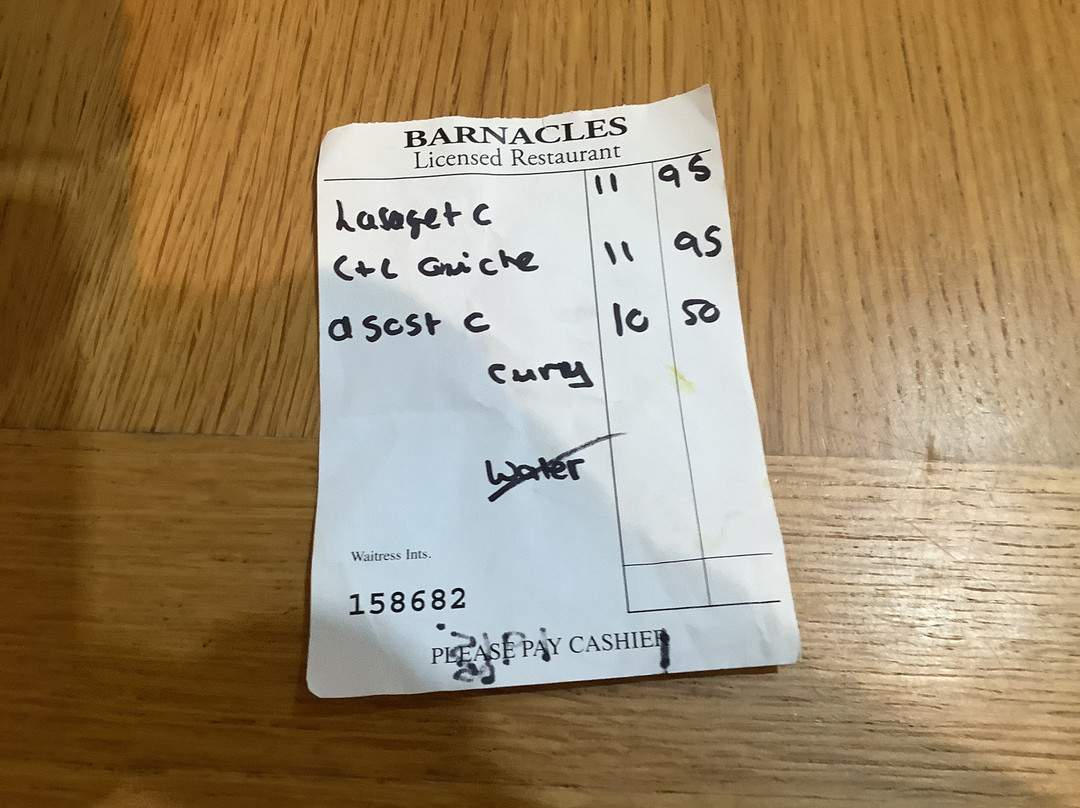 BARNACLES
Licensed Restaurant
Lasaget C 11 95
C+L Quiche 11 95
a sost C 10 50
Curry
Water
Waitress Ints.
158682
PLEASE PAY CASHIER